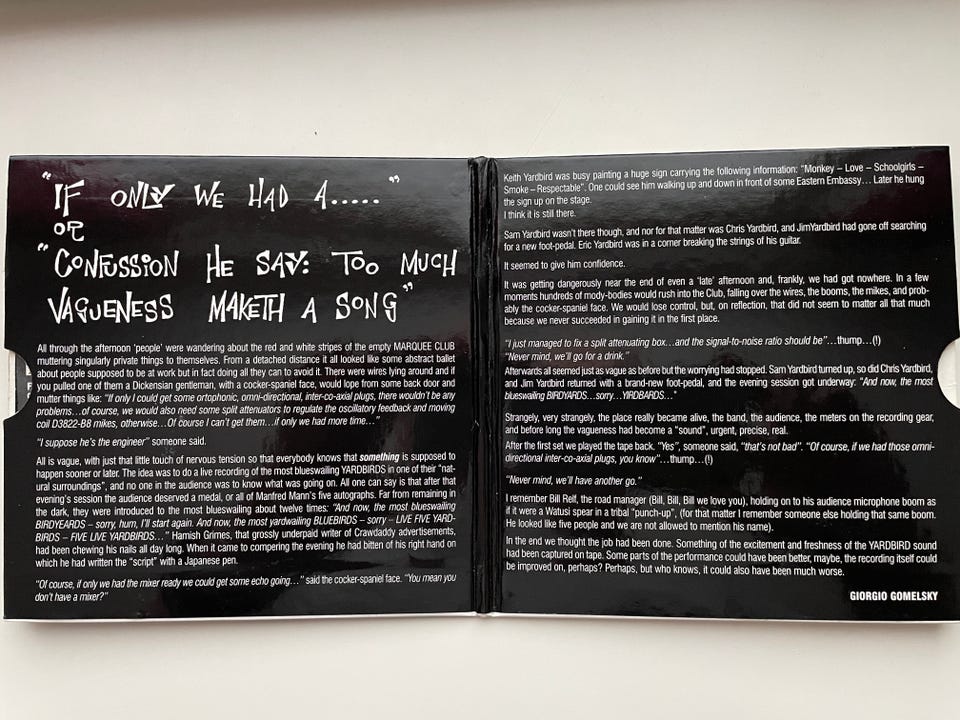 "IF ONLY WE HAD A....."
OR
"CONFUSSION HE SAY: TOO MUCH
VAGUENESS MAKETH A SONG"
All through the afternoon 'people' were wandering about the red and white stripes of the empty MARQUEE CLUB
muttering singularly private things to themselves. From a detached distance it all looked like some abstract ballet
about people supposed to be at work but in fact doing all they can to avoid it. There were wires lying around and if
you pulled one of them a Dickensian gentleman, with a cocker-spaniel face, would lope from some back door and
mutter things like: "If only I could get some ortophonic, omni-directional, inter-co-axial plugs, there wouldn't be any
problems...of course, we would also need some split attenuators to regulate the oscillatory feedback and moving
coil D3822-B8 mikes, otherwise...Of course I can't get them...if only we had more time..."
"I suppose he's the engineer" someone said.
All is vague, with just that little touch of nervous tension so that everybody knows that something is supposed to
happen sooner or later. The idea was to do a live recording of the most blueswailing YARDBIRDS in one of their "nat-
ural surroundings", and no one in the audience was to know what was going on. All one can say is that after that
evening's session the audience deserved a medal, or all of Manfred Mann's five autographs. Far from remaining in
the dark, they were introduced to the most blueswailing about twelve times: "And now, the most blueswailing
BIRDYEARDS – sorry, hum, I'll start again. And now, the most yardwailing BLUEBIRDS – sorry – LIVE FIVE YARD-
BIRDS – FIVE LIVE YARDBIRDS..." Hamish Grimes, that grossly underpaid writer of Crawdaddy advertisements,
had been chewing his nails all day long. When it came to compering the evening he had bitten of his right hand on
which he had written the "script" with a Japanese pen.
"Of course, if only we had the mixer ready we could get some echo going..." said the cocker-spaniel face. "You mean you
don't have a mixer?"
Keith Yardbird was busy painting a huge sign carrying the following information: "Monkey – Love – Schoolgirls –
Smoke – Respectable". One could see him walking up and down in front of some Eastern Embassy... Later he hung
the sign up on the stage.
I think it is still there.
Sam Yardbird wasn't there though, and nor for that matter was Chris Yardbird, and JimYardbird had gone off searching
for a new foot-pedal. Eric Yardbird was in a corner breaking the strings of his guitar.
It seemed to give him confidence.
It was getting dangerously near the end of even a 'late' afternoon and, frankly, we had got nowhere. In a few
moments hundreds of mody-bodies would rush into the Club, falling over the wires, the booms, the mikes, and prob-
ably the cocker-spaniel face. We would lose control, but, on reflection, that did not seem to matter all that much
because we never succeeded in gaining it in the first place.
"I just managed to fix a split attenuating box...and the signal-to-noise ratio should be"...thump...(!)
"Never mind, we'll go for a drink."
Afterwards all seemed just as vague as before but the worrying had stopped. Sam Yardbird turned up, so did Chris Yardbird,
and Jim Yardbird returned with a brand-new foot-pedal, and the evening session got underway: "And now, the most
blueswailing BIRDYARDS...sorry...YIRDBARDS..."
Strangely, very strangely, the place really became alive, the band, the audience, the meters on the recording gear,
and before long the vagueness had become a "sound", urgent, precise, real.
After the first set we played the tape back. "Yes", someone said, "that's not bad". "Of course, if we had those omni-
directional inter-co-axial plugs, you know"...thump...(!)
"Never mind, we'll have another go."
I remember Bill Relf, the road manager (Bill, Bill, Bill we love you), holding on to his audience microphone boom as
if it were a Watusi spear in a tribal "punch-up", (for that matter I remember someone else holding that same boom.
He looked like five people and we are not allowed to mention his name).
In the end we thought the job had been done. Something of the excitement and freshness of the YARDBIRD sound
had been captured on tape. Some parts of the performance could have been better, maybe, the recording itself could
be improved on, perhaps? Perhaps, but who knows, it could also have been much worse.
GIORGIO GOMELSKY